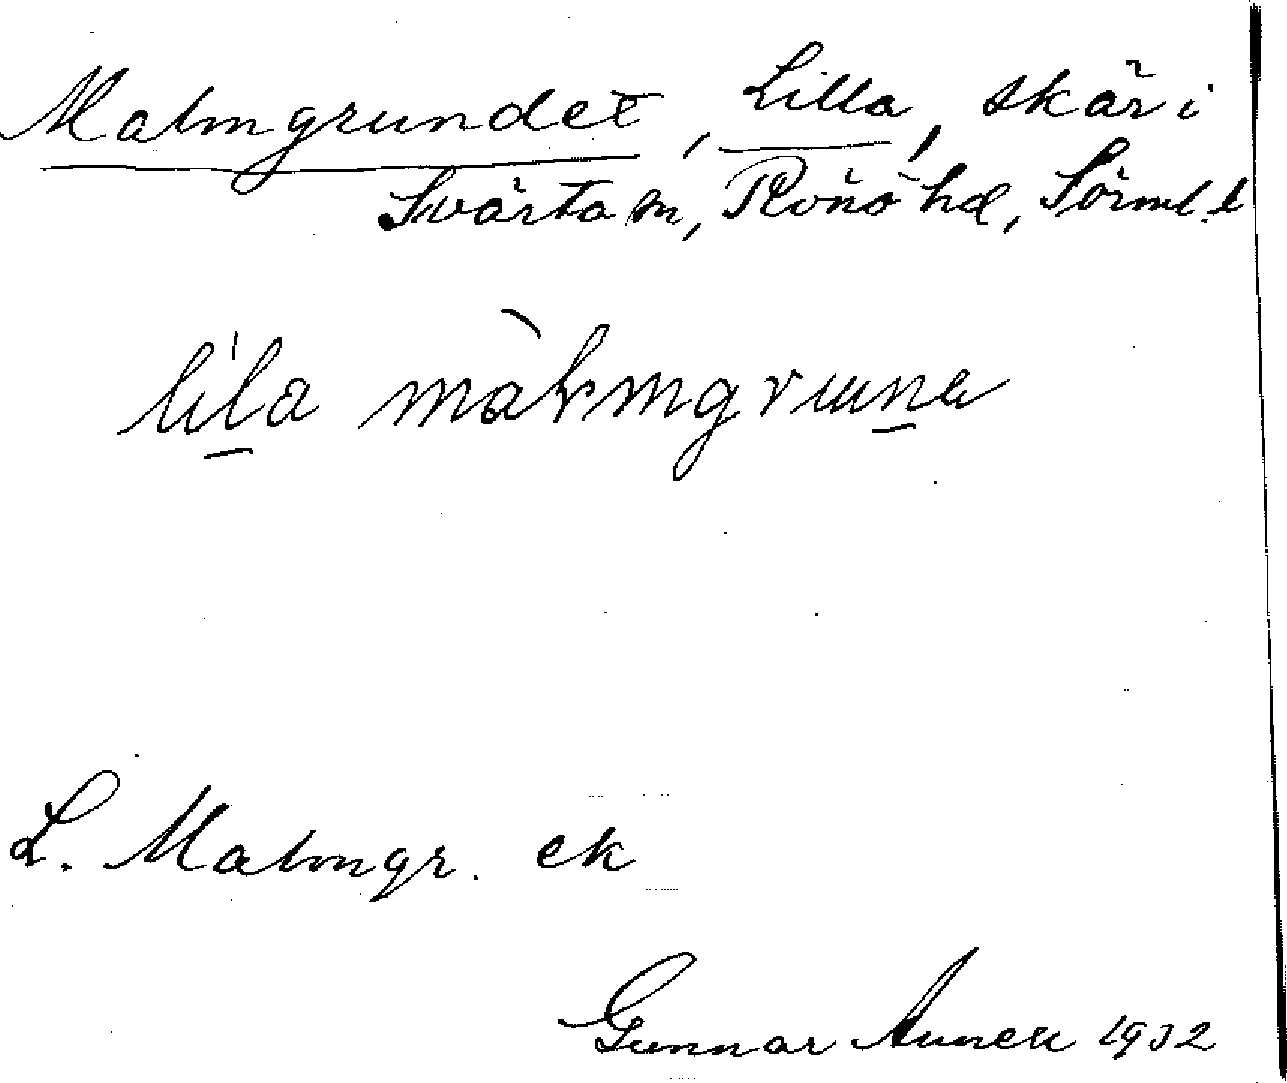 Malmgrundet, Lilla, skär i
Svärta sn, Rönö hd, Sörml. l
lila màlmgruna
L. Malmgr. ek
Gunnar 1932